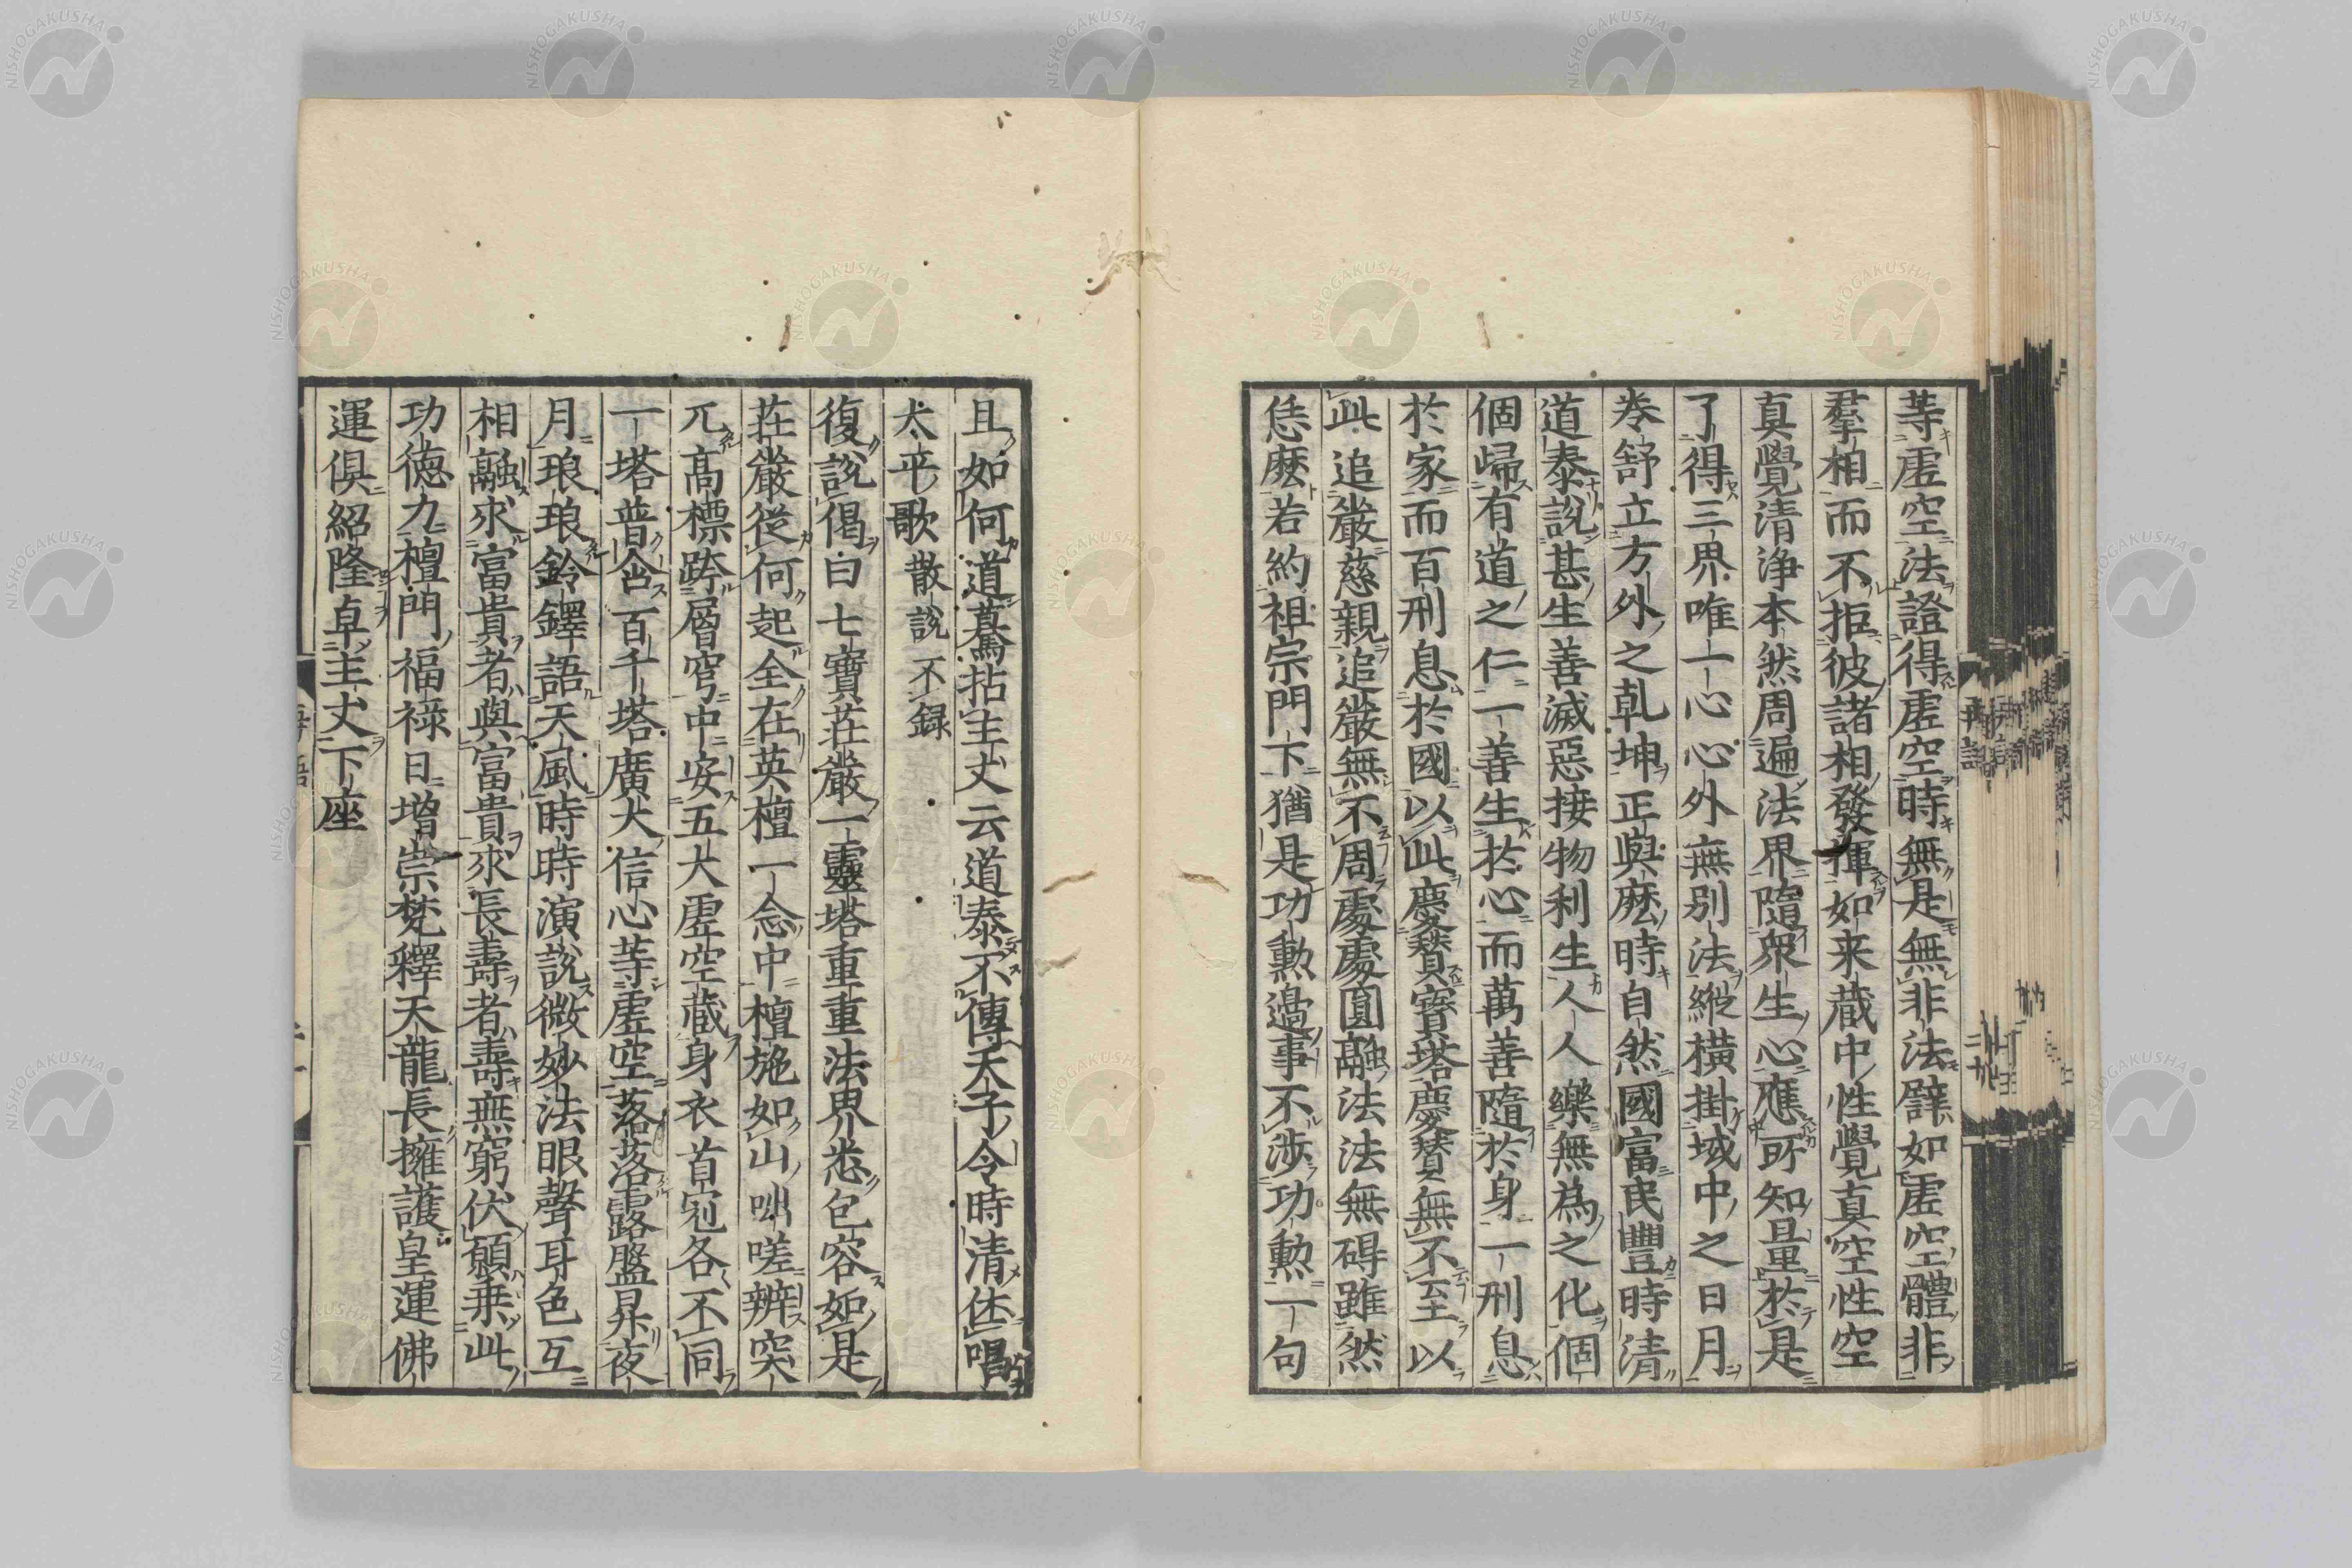 等虚空法證得虚空時無是無非法譬如虚空體非
羣相而不拒彼諸相發揮如来蔵中性覺真空性空
真覺清浄本然周遍法界隨衆生心應所知量於是
了得三界唯一心心外無別法縱横掛域中之日月
巻舒立方外之乹坤正與麽時自然國富民豐時清
道泰説甚生善滅惡接物利生人人樂無為之化個
個歸有道之仁一善生於心而萬善隨於身一刑息
於家而百刑息於國以此慶賛寳塔慶賛無不至以
此追嚴慈親追嚴無不周處處圓融法法無碍雖然
恁麽若約祖宗門下猶是功勲邉事不渉功勲一句
且如何道驀拈主丈云道泰不傳天子令時清休唱
太平歌散説不録
復説偈曰七寳莊嚴一靈塔重重法界悉包容如是
莊嚴從何起全在英檀一念中檀施如山咄嗟辨突
兀高標跨層穹中安五大虚空蔵身衣首冠各不同
一塔普含百千塔廣大信心等虚空落落露盤昇夜
月琅琅鈴鐸語天風時時演説微妙法眼聲耳色互
相融求富貴者與富貴求長壽者壽無窮伏願乗此
功徳力檀門福禄日増崇梵釋天龍長擁護皇運佛
運俱紹隆卓主丈下座
NISHOGAKUSHA